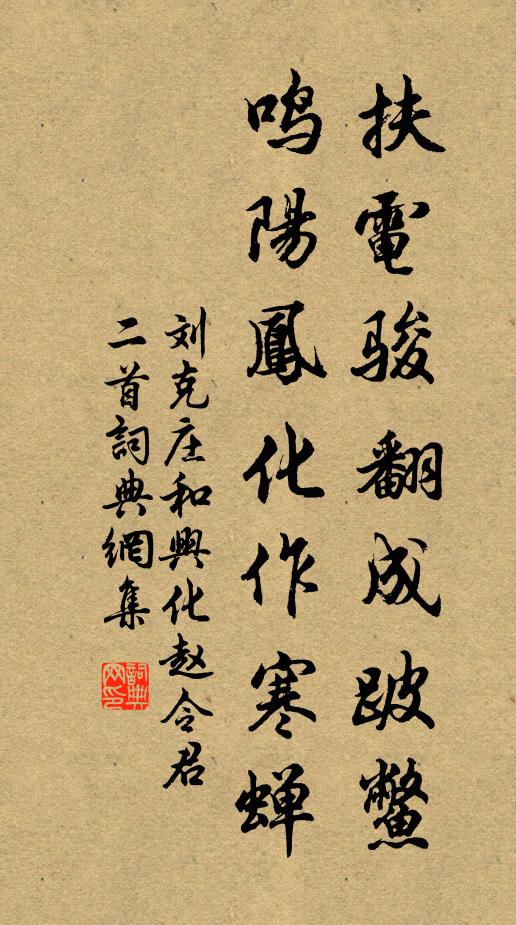 扶電骏翻成跛鱉
鸣陽鳳化作寒蝉
刘克庄和興化赵令君
二首詞典網集
詞典網印